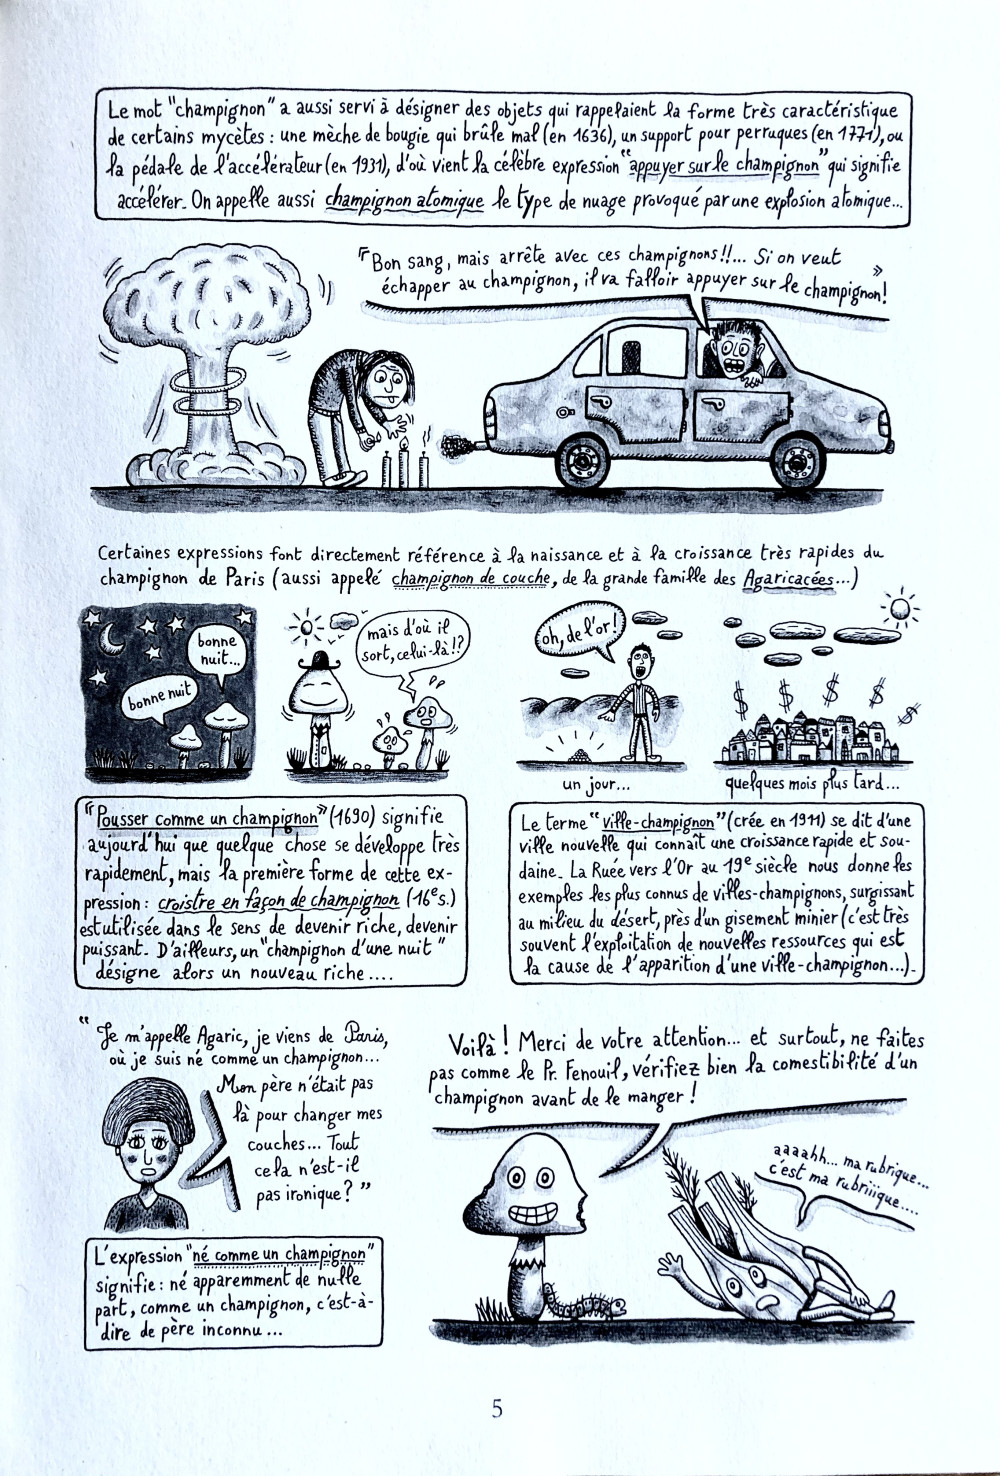 Le mot "champignon" a aussi servi à désigner des objets qui rappelaient la forme très caractéristique
de certains mycètes : une mèche de bougie qui brûle mal (en 1636), un support pour perruques (en 1771), ou
la pédale de l'accélérateur (en 1931), d'où vient la célèbre expression "appuyer sur le champignon" qui signifie
accélérer. On appelle aussi champignon atomique le type de nuage provoqué par une explosion atomique...
"Bon sang, mais arrête avec ces champignons!!... Si on veut
échapper au champignon, il va falloir appuyer sur le champignon! »
Certaines expressions font directement référence à la naissance et à la croissance très rapides du
champignon de Paris (aussi appelé champignon de couche, de la grande famille des Agaricacées...)
bonne
nuit...
bonne nuit
mais d'où il
sort, celui-là!?
oh, de l'or!
$ $ $ $ $
un jour...
quelques mois plus tard...
"Pousser comme un champignon" (1690) signifie
aujourd'hui que quelque chose se développe très
rapidement, mais la première forme de cette ex-
pression : croistre en façon de champignon (16e s.)
est utilisée dans le sens de devenir riche, devenir
puissant. D'ailleurs, un "champignon d'une nuit"
désigne alors un nouveau riche ....
Le terme "ville-champignon" (crée en 1911) se dit d'une
ville nouvelle qui connaît une croissance rapide et sou-
daine. La Ruée vers l'Or au 19e siècle nous donne les
exemples les plus connus de villes-champignons, surgissant
au milieu du désert, près d'un gisement minier (c'est très
souvent l'exploitation de nouvelles ressources qui est
la cause de l'apparition d'une ville-champignon...).
"Je m'appelle Agaric, je viens de Paris,
où je suis né comme un champignon...
Mon père n'était pas
là pour changer mes
couches... Tout
cela n'est-il
pas ironique? "
L'expression "né comme un champignon"
signifie : né apparemment de nulle
part, comme un champignon, c'est-à-
dire de père inconnu ...
Voilà ! Merci de votre attention... et surtout, ne faites
pas comme le Pr. Fenouil, vérifiez bien la comestibilité d'un
champignon avant de le manger !
aaaahh... ma rubrique...
c'est ma rubriiique....
5